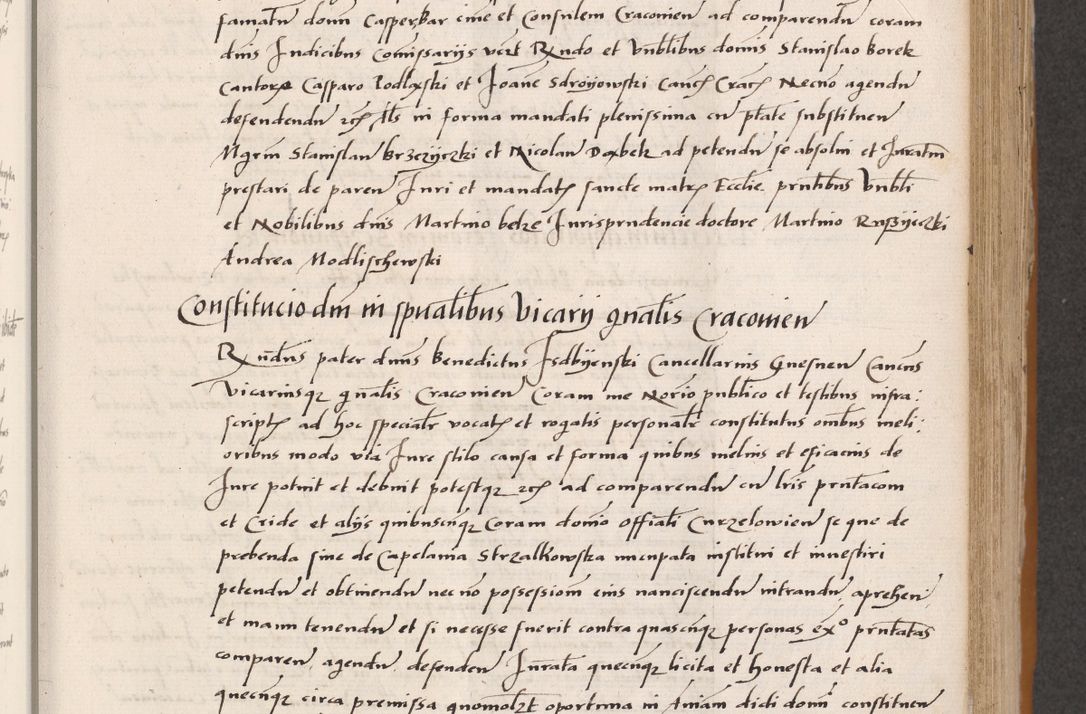 famatu domi Casper Bar cive et Consulem Cracovien ad comparendu coram
dnis Iudicibus Comissarijs vert Rndo et Vnblibus domis Stanislao Borek
Cantore Casparo Podlaski et Ioane Sdroyowski Canoc Crac Necno agendu
defendendu etc Als in forma mandati plenissima cu ptate substituen
Mgrm Stanislau Brzezyczki et Nicolau Dabek ad petendu se absolui et Iuratm
prestari de paren Iuri et mandatis sancte matris Ecclie, prntibus Vnbli
et Nobilibus dnis Martino belze Iurisprudencie doctore Martino Ruszyczki
Andrea Modlischewski
Constitucio dni in spualibus Vicarij gnalis Cracovien
Rndus pater dnus Benedictus Isdbyenski Cancellarius Gnesnen Cancus
Vicariusq gnalis Cracovien Coram me Norio publico et testibus infra:
scriptis ad hoc specialr vocatis et rogatis personalr constitutus omibus meli:
oribus modo via Iure stilo causa et forma quibus melius et eficacius de
Iure potuit et debuit potestq etc ad comparendu cu lris prntacom
et Cride et alijs quibuscuq Coram domio officiali Curzelowien se que de
prebenda sive de Capelania Strzalkowska nucupata institui et inuestiri
petendu et obtinendu necno possessiom eius nanciscendu intrandu, aprehen,
et manu tenendu et si necesse fuerit contra quascuq personas ex° prntatas
comparen, agendu, defenden Iurata quecuq licita et honesta et alia
quecuq circa premissa quomolzt oportuna in Aniam didi domi constituen